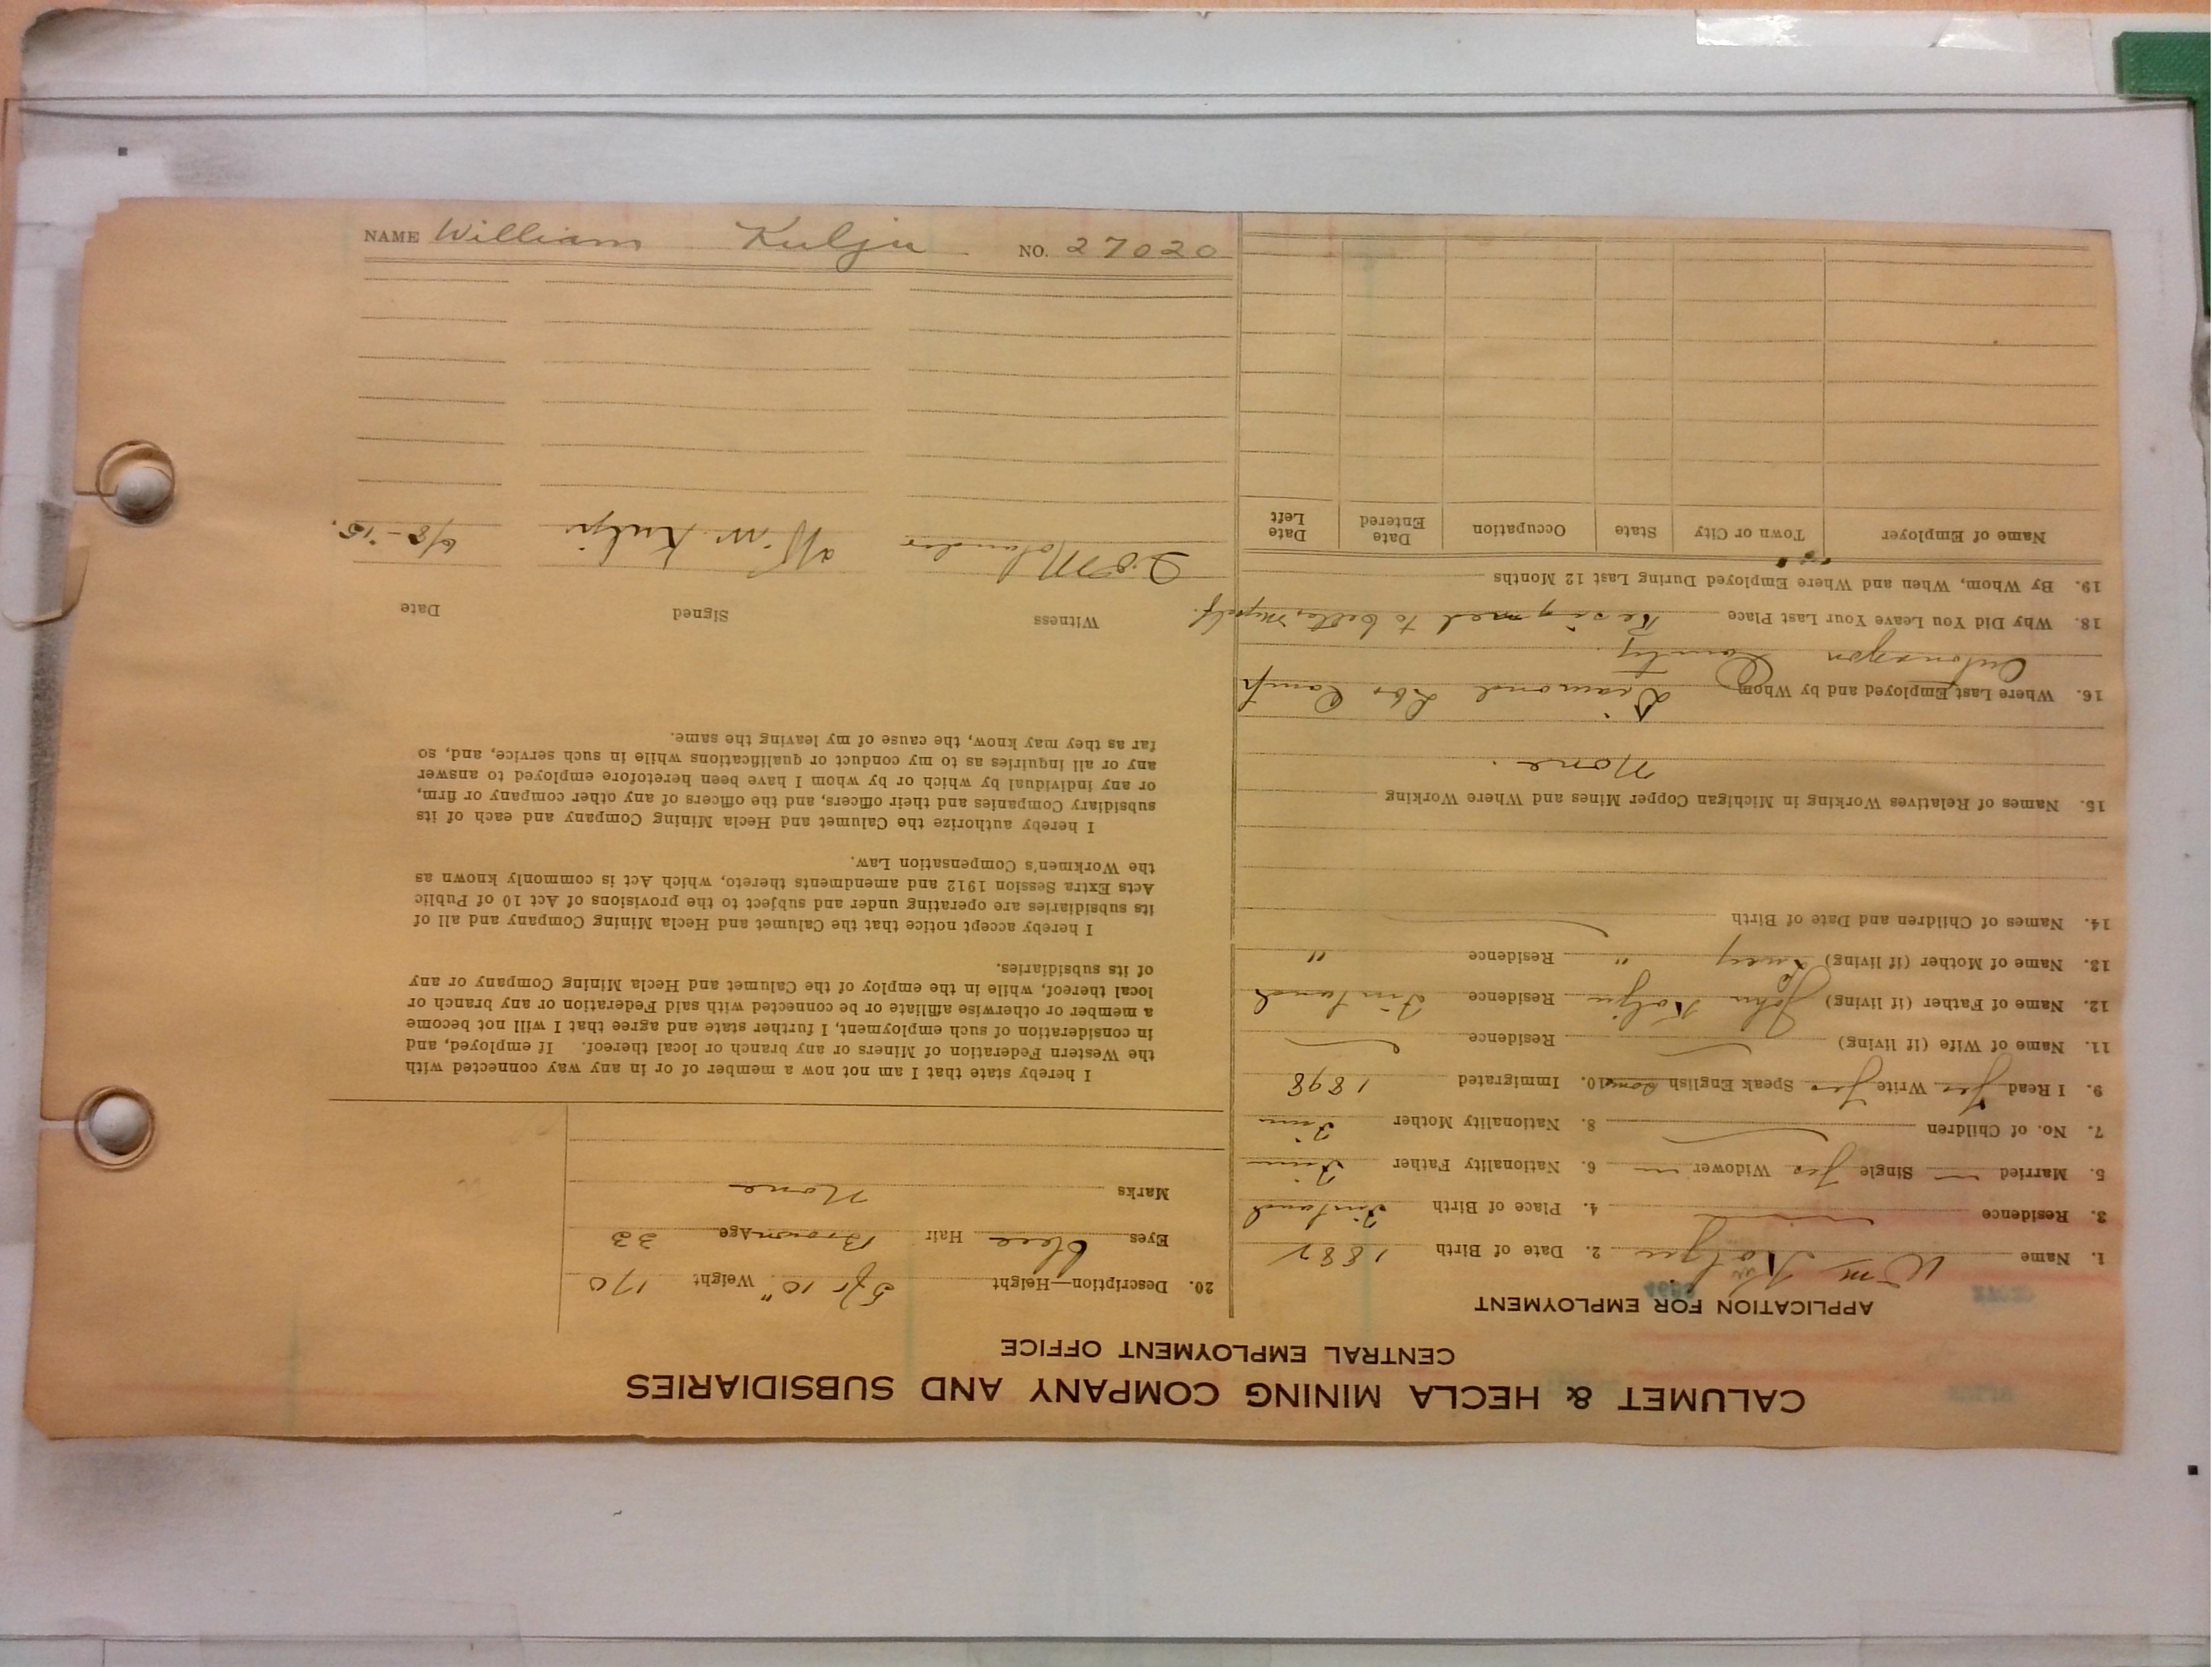 CALUMET & HECLA MINING COMPANY AND SUBSIDIARIES
CENTRAL EMPLOYMENT OFFICE
APPLICATION FOR EMPLOYMENT
1. Name Wm 2. Date of Birth 1882
3. Residence 4. Place of Birth Finland
5. Married — Single Yes Widower — 6. Nationality Father Finn
7. No. of Children 8. Nationality Mother Finn
9. I Read Yes Write Yes Speak English Some 10. Immigrated 1898
11. Name of Wife (if living) Residence
12. Name of Father (if living) John Residence Finland
13. Name of Mother (if living) " Residence "
14. Names of Children and Date of Birth
15. Names of Relatives Working in Michigan Copper Mines and Where Working
None.
16. Where Last Employed and by Whom Diamond Lbr Camp
Ontonagon County.
18. Why Did You Leave Your Last Place Resigned to better myself.
19. By Whom, When and Where Employed During Last 12 Months
Name of Employer Town or City State Occupation Date Entered Date Left
20. Description—Height 5 ft 10" Weight 170
Eyes blue Hair Brown Age 33
Marks None
I hereby state that I am not now a member of or in any way connected with
the Western Federation of Miners or any branch or local thereof. If employed, and
in consideration of such employment, I further state and agree that I will not become
a member or otherwise affiliate or be connected with said Federation or any branch or
local thereof, while in the employ of the Calumet and Hecla Mining Company or any
of its subsidiaries.
I hereby accept notice that the Calumet and Hecla Mining Company and all of
its subsidiaries are operating under and subject to the provisions of Act 10 of Public
Acts Extra Session 1912 and amendments thereto, which Act is commonly known as
the Workmen's Compensation Law.
I hereby authorize the Calumet and Hecla Mining Company and each of its
subsidiary Companies and their officers, and the officers of any other company or firm,
or any individual by which or by whom I have been heretofore employed to answer
any or all inquiries as to my conduct or qualifications while in such service, and, so
far as they may know, the cause of my leaving the same.
Witness Signed Date
Molander Kulju 6/8-'15.
NAME William Kulju NO. 27020